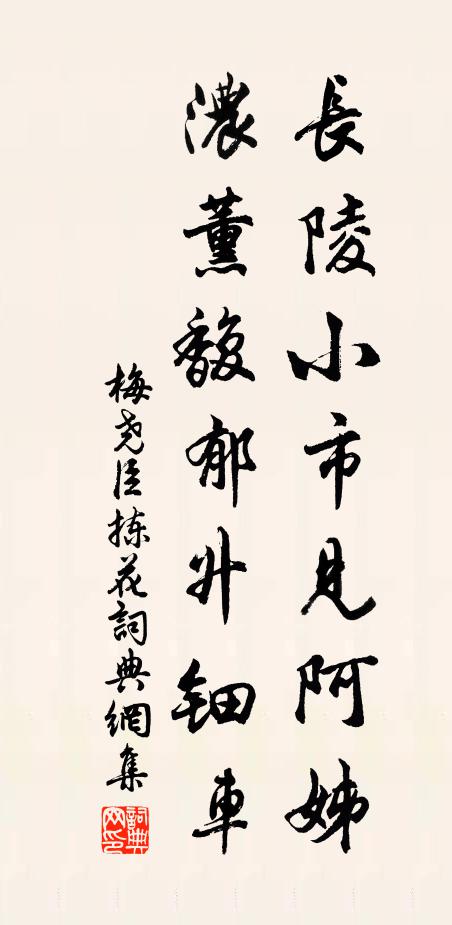 長陵小市見阿姊
濃薰馥郁升鈿車
梅尧臣揀花詞典網集
詞典網印